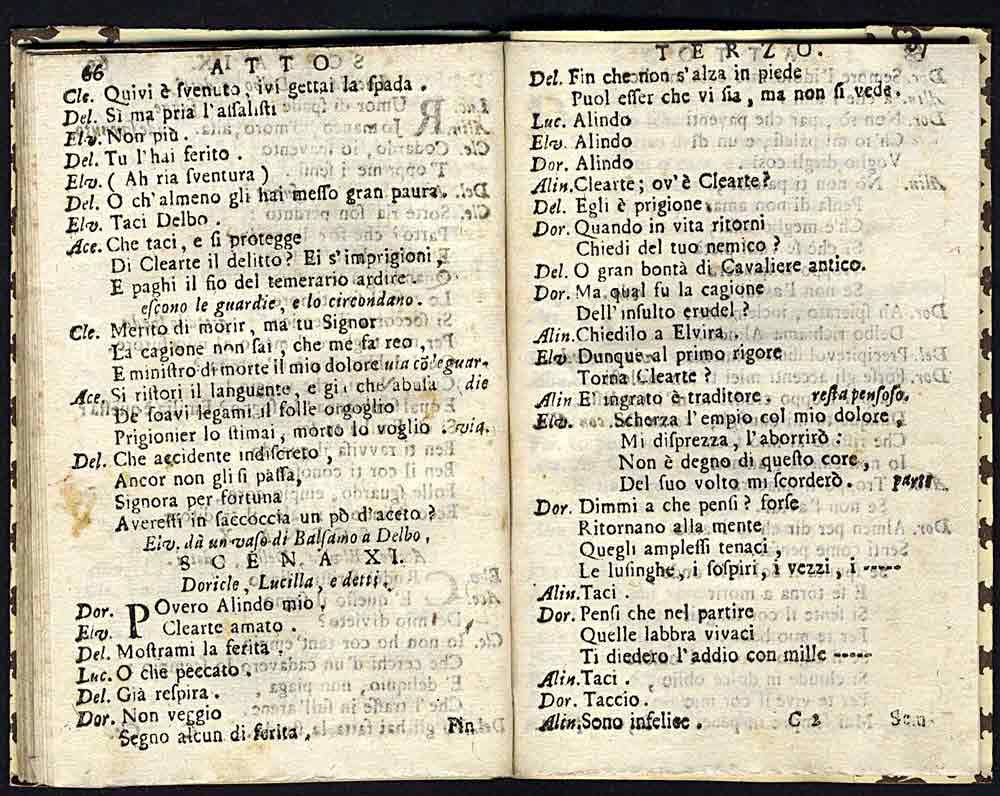 66 ATTO
Cle. Quivi è ſvenuto, ivi gettai la ſpada.
Del. Sì ma pria l'aſſaliſti
Elv. Non più.
Del. Tu l'hai ferito.
Elv. ( Ah ria ſventura )
Del. O ch'almeno gli hai meſſo gran paura.
Elv. Taci Delbo.
Ace. Che taci, e ſi protegge
Di Clearte il delitto? Ei s'imprigioni,
E paghi il fio del temerario ardire.
eſcono le guardie, e lo circondano.
Cle. Merito di morir, ma tu Signor
La cagione non ſai, che me fa' reo,
E miniſtro di morte il mio dolore via cō le guar-
Ace. Si riſtori il languente, e già che abuſa die
De ſoavi legami il folle orgoglio
Prigionier lo ſtimai, morto lo voglio. via.
Del. Che accidente indiſcreto,
Ancor non gli ſi paſſa,
Signora per fortuna
Avereſſi in ſaccoccia un pò d'aceto?
Elv. dà un vaſo di Balſamo a Delbo,
SCENA XI.
Doricle, Lucilla, e detti.
Dor. POvero Alindo mio,
Elv. Clearte amato.
Del. Moſtrami la ferita.
Luc. O che peccato.
Del. Già reſpira.
Dor. Non veggio
Segno alcun di ferita.
Fin
TERZO.
Del. Fin che non s'alza in piede
Puol eſſer che vi ſia, ma non ſi vede.
Luc. Alindo
Elv. Alindo
Dor. Alindo
Alin. Clearte; ov'è Clearte?
Del. Egli è prigione.
Dor. Quando in vita ritorni
Chiedi del tuo nemico?
Del. O gran bontà di Cavaliere antico.
Dor. Ma qual fu la cagione
Dell'inſulto crudel?
Alin. Chiedilo a Elvira.
Elv. Dunque al primo rigore
Torna Clearte?
Alin El ingrato è traditore. reſta penſoſo.
Elv. Scherza l'empio col mio dolore,
Mi diſprezza, l'aborrirò:
Non è degno di queſto core,
Del ſuo volto mi ſcorderò. parte
Dor. Dimmi a che penſi? forſe
Ritornano alla mente
Quegli ampleſſi tenaci,
Le luſinghe, i ſoſpiri, i vezzi, i -----
Alin. Taci.
Dor. Penſi che nel partire
Quelle labbra vivaci
Ti diedero l'addio con mille -----
Alin. Taci.
Dor. Taccio.
Alin. Sono infelice.
C 2